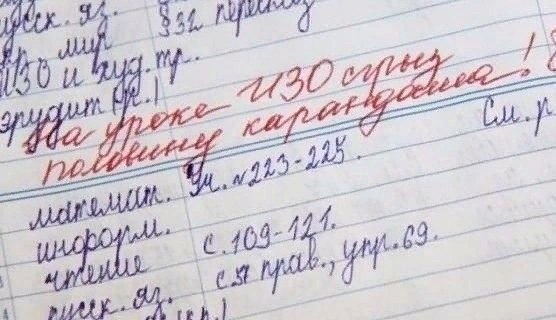 русск. яз. §32 пересказ
окр. мир
ИЗО и худ. тр.
эрудит (кр.)
На уроке ИЗО сгрыз
половину карандаша!
См. р
математ. Уч. №223-225.
информ.
чтение с. 109-121.
русск. яз. с.51 прав., упр. 69.